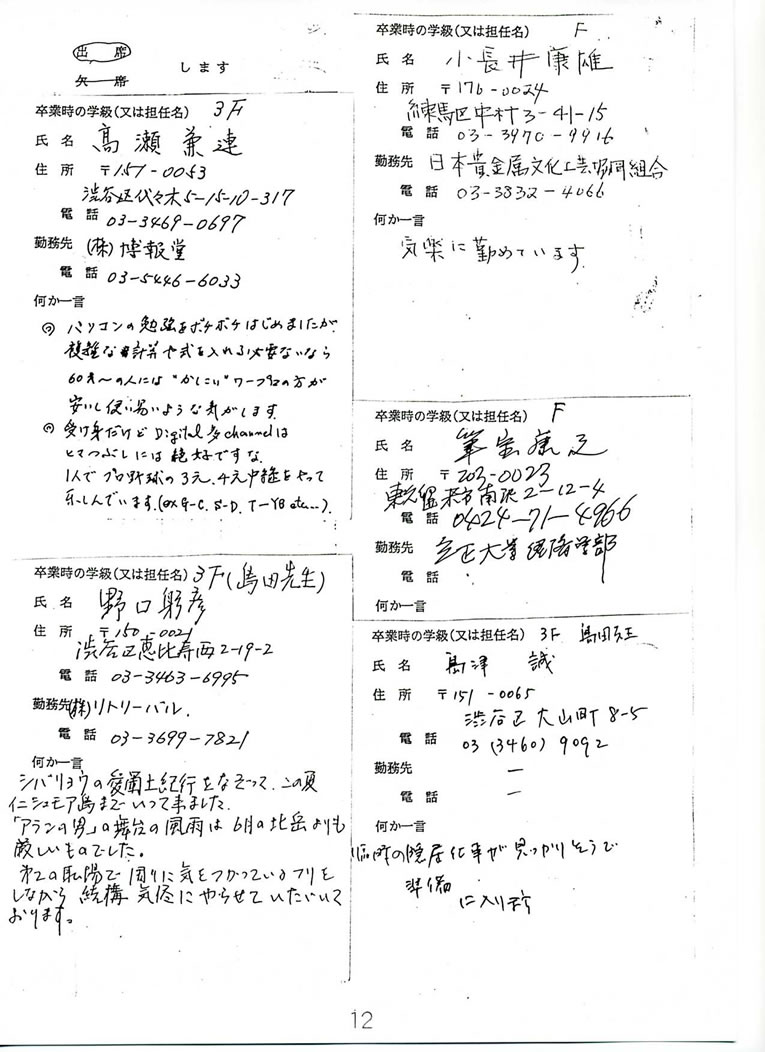 出 席
欠 席
します
卒業時の学級(又は担任名) 3F
氏 名 高瀬兼連
住 所 〒151-0053
渋谷区代々木5-15-10-317
電 話 03-3469-0697
勤務先 (株)博報堂
電 話 03-5446-6033
何か一言
パソコンの勉強をボチボチはじめましたが
複雑な計算や式を入れる必要ないなら
60才〜の人には"かしこい"ワープロの方が
安いし使い易いような気がします。
受け身だけどDigital多channelは
ヒマつぶしには絶好ですな
1人でプロ野球の3元、4元中継をやって
楽しんでいます。(ex G-C. S-D. T-YB etc...).
卒業時の学級(又は担任名) 3F(島田先生)
氏 名 野口
住 所 〒150-0021
渋谷区恵比寿西2-19-2
電 話 03-3463-6995
勤務先 (株)リトリーバル.
電 話 03-3699-7821
何か一言
シバリョウの愛蘭土紀行をなぞって、この夏
イニシュモア島までいって来ました.
「アランの男」の舞台の風雨は6月の北岳よりも
厳しいものでした。
第2の職場で周りに気をつかっているフリを
しながら結構気侭にやらせていただいて
おります。
卒業時の学級(又は担任名) F
氏 名 小長井康雄
住 所 〒176-0024
練馬区中村3-41-15
電 話 03-3970-9916
勤務先 日本貴金属文化工芸協同組合
電 話 03-3832-4066
何か一言
気楽に勤めています.
卒業時の学級(又は担任名) F
氏 名 筆宝
住 所 〒203-0023
東久留米市南沢2-12-4
電 話 0424-71-4966
勤務先 立正大学経済学部
電 話
何か一言
卒業時の学級(又は担任名) 3F 島田
氏 名 島津 誠
住 所 〒151-0065
渋谷区大山町8-5
電 話 03(3460)9092
勤務先 ー
電 話 ー
何か一言
臨時の隠居仕事が見つかりそうで
準備
に入り
12